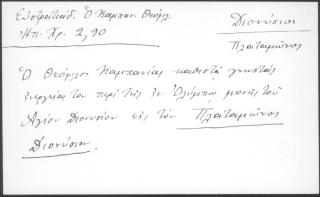 Εὐστρατιάδ. Ὁ Καμπαν. Θεόφιλ.
Ἠπ. Χρ. 2, 90
Διονύσιος
Πλαταμῶνος
Ὁ Θεόφιλος Καμπανίας καθιστᾷ γνωστάς
ἐνεργείας του περὶ τῆς ἐν Ὀλύμπῳ μονῆς τοῦ
Ἁγίου Διονυσίου εἰς τὸν Πλαταμῶνος
Διονύσιον.